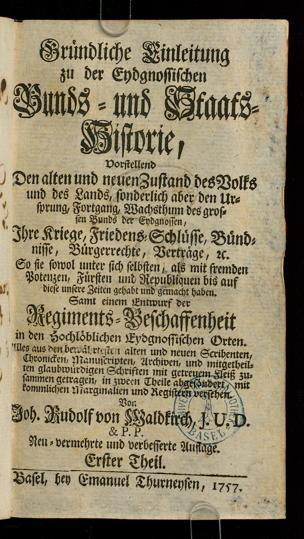 Gründliche Einleitung
zu der Eydgnossischen
Bunds- und Staats-
Historie,
Vorstellend
Den alten und neuen Zustand des Volks
und des Lands, sonderlich aber den Ur-
sprung, Fortgang, Wachsthum des gros-
sen Bunds der Eydgnossen,
Ihre Kriege, Friedens-Schlüsse, Bünd-
nisse, Bürgerrechte, Verträge, ꝛc.
So sie sowol unter sich selbsten, als mit fremden
Potenzen, Fürsten und Republiquen bis auf
diese unsere Zeiten gehabt und gemacht haben.
Samt einem Entwurf der
Regiments-Beschaffenheit
in den Hochlöblichen Eydgnossischen Orten.
Alles aus den bewährtesten alten und neuen Scribenten,
Chronicken, Manuscripten, Archiven, und mitgetheil-
ten glaubwürdigen Schriften mit getreuem Fleiß zu-
sammen getragen, in zween Theile abgesöndert, mit
kommlichen Marginalien und Registern versehen,
Von
Joh. Rudolf von Waldkirch, J. U. D.
& P. P.
Neu-vermehrte und verbesserte Auflage.
Erster Theil.
Basel, bey Emanuel Thurneysen, 1757.